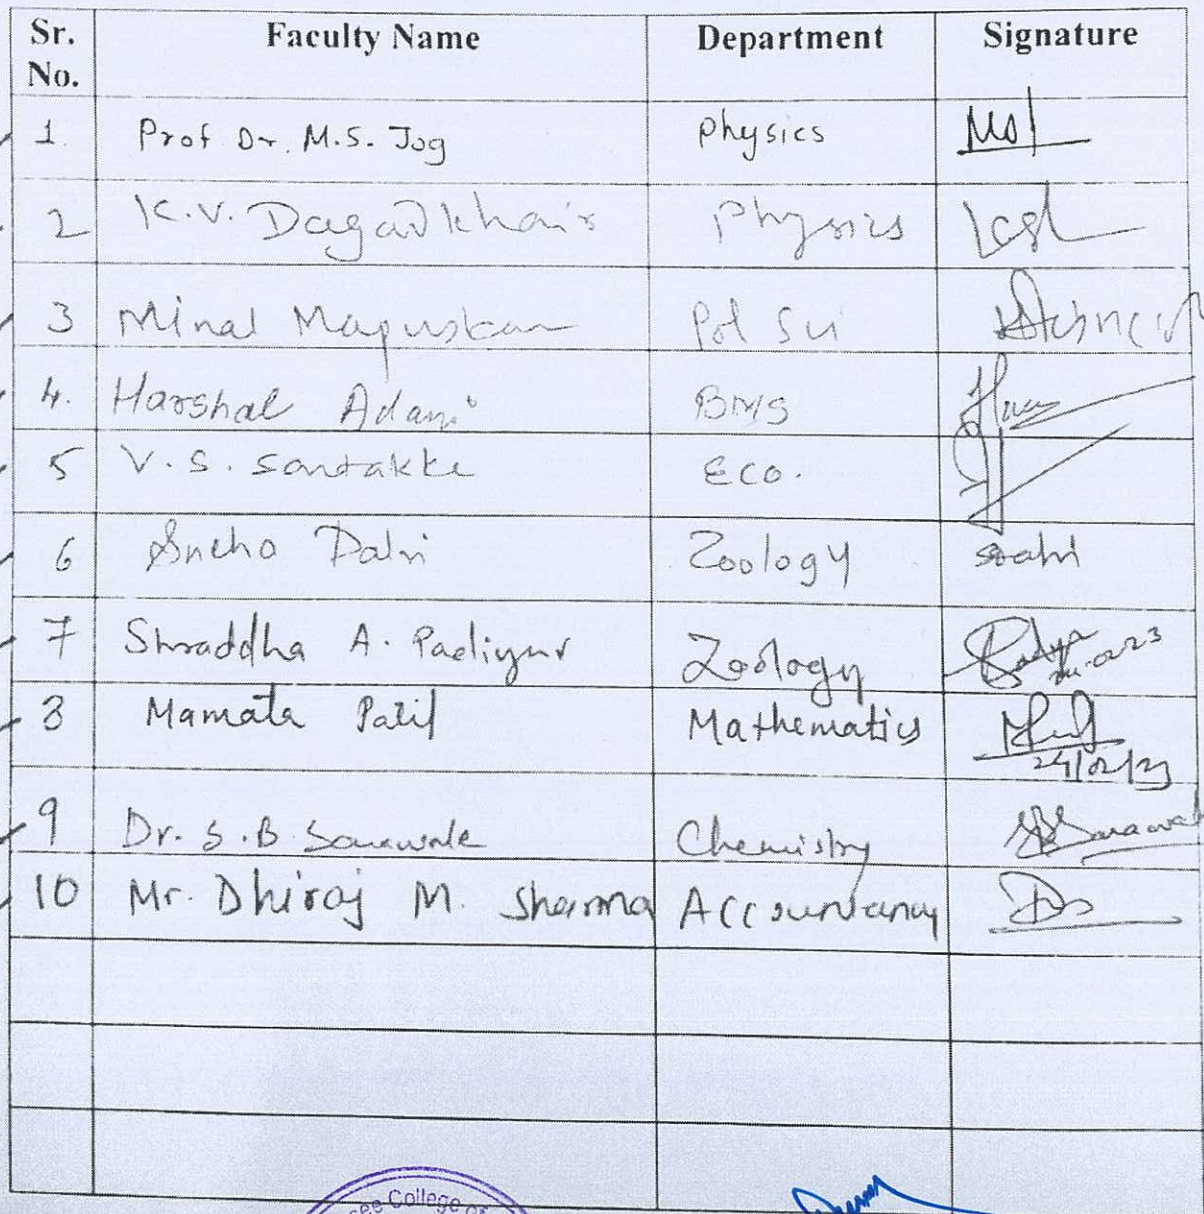 Sr. No. Faculty Name Department Signature
1. Prof Dr. M.S. Jog Physics
2 K.V. Dagadkhair Physics
3 Minal Mapuskar Pol Sci
4. Harshal Adani BMS
5 V.S. Sontakke ECO.
6 Sneha Dalvi Zoology
7 Shraddha A. Padiyur Zoology
8 Mamata Patil Mathematics 24/02/23
9 Dr. S.B. Sarawade Chemistry
10 Mr. Dhiraj M. Sharma Accountancy
College of